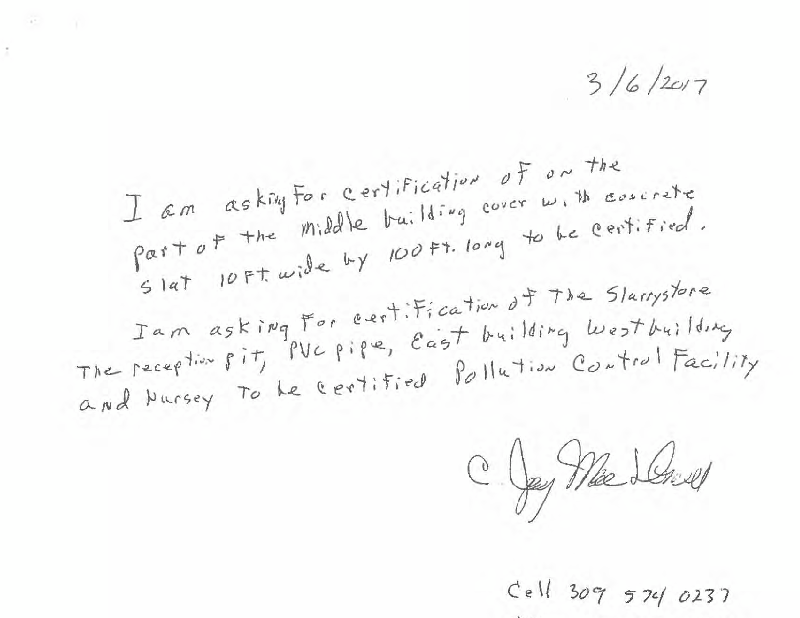 3/6/2017
I am asking For certification of on the
part of the middle building cover with concrete
slat 10 FT. wide by 100 FT. long to be certified.
I am asking For certification of The Slurrystore
The reception pit, PVC pipe, East building West building
and Nursey To be certified Pollution Control Facility
C. Jay
Cell 309 574 0237